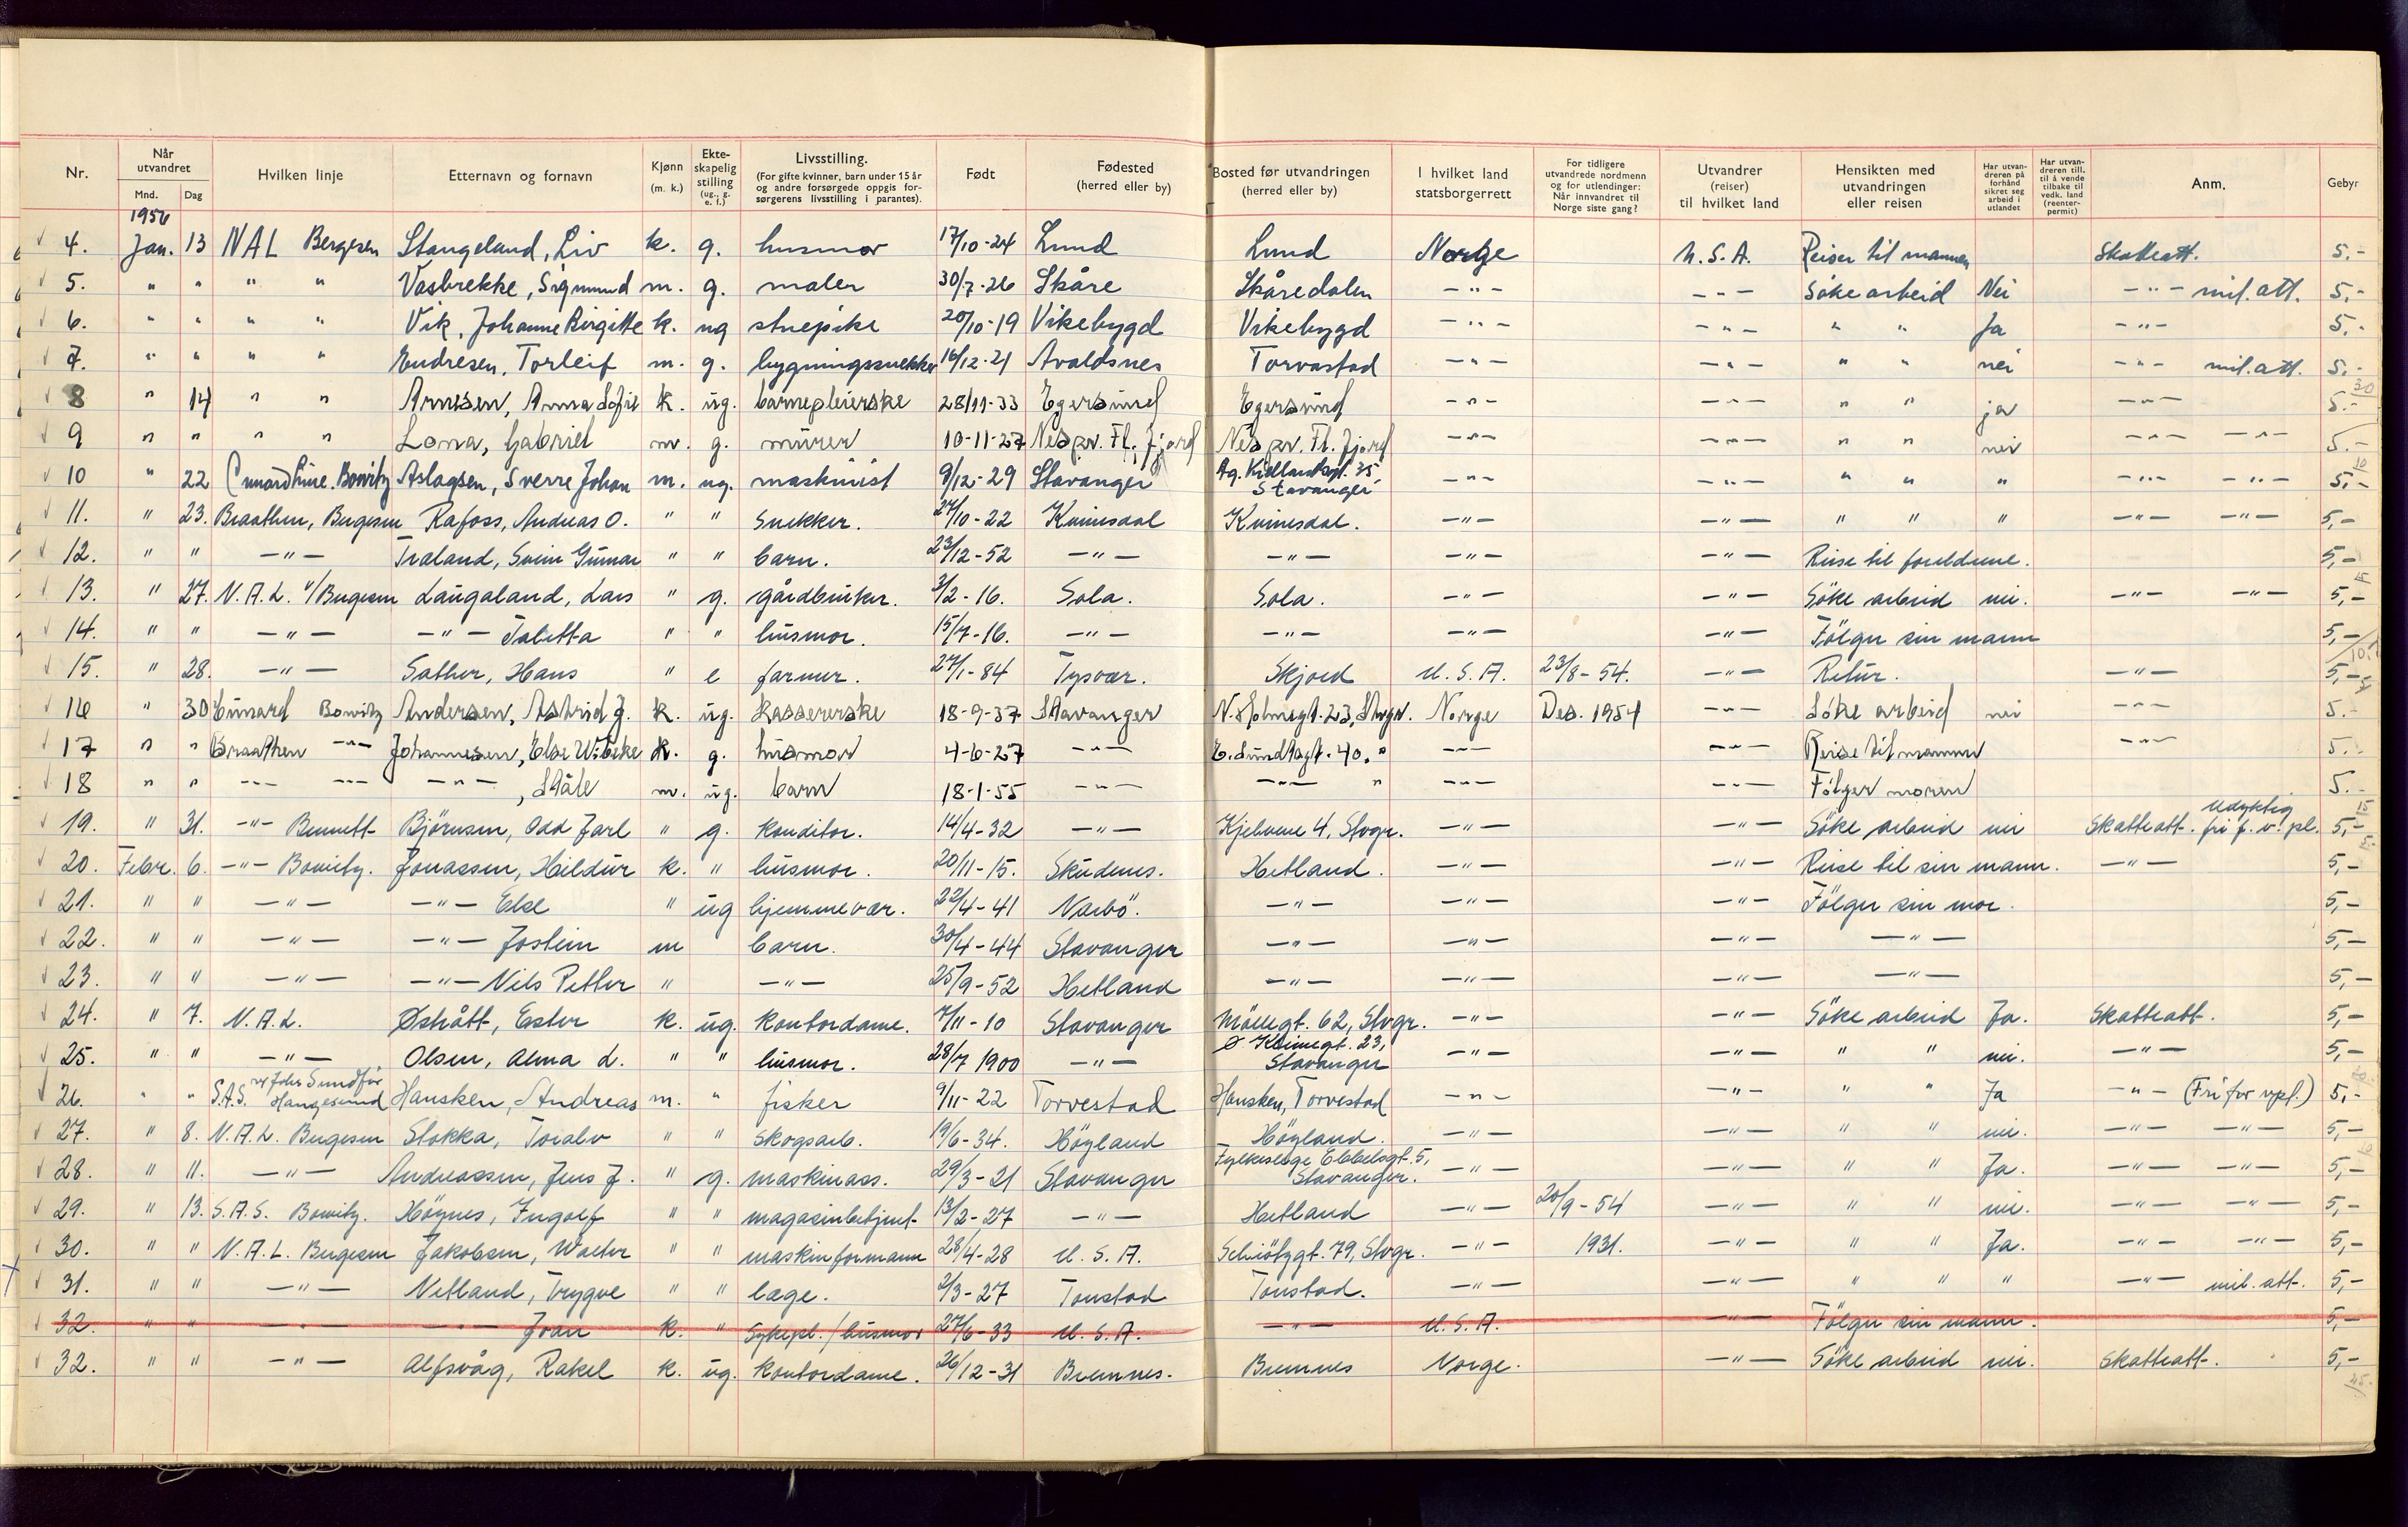 Nr. Når utvandret Mnd. Dag Hvilken linje Etternavn og fornavn Kjønn (m. k.) Ekteskapelig stilling (ug., g. e. f.) Livsstilling. (For gifte kvinner, barn under 15 år og andre forsørgede oppgis forsørgerens livsstilling i parantes). Født Fødested (herred eller by) Bosted før utvandringen (herred eller by) I hvilket land statsborgerrett For tidligere utvandrede nordmenn og for utlendinger: Når innvandret til Norge siste gang? Utvandrer (reiser) til hvilket land Hensikten med utvandringen eller reisen Har utvandreren på forhånd sikret seg arbeid i utlandet Har utvandreren till. til å vende tilbake til vedk. land (reenterpermit) Anm. Gebyr
1956
4. Jan. 13 NAL Bergesen Stangeland, Liv k. g. husmor 17/10-24 Lund Lund Norge U.S.A. Reiser til mannen Skatteatt. 5.-
5. " " " " Vasbrekke, Sigmund m. g. maler 30/7-26 Skåre Skåredalen -"- -"- Søke arbeid Nei -"- mil.att. 5.-
6. " " " " Vik, Johanne Birgitte k. ug stuepike 20/10-19 Vikebygd Vikebygd -"- -"- " " Ja -"- 5.-
7. " " " " Endresen, Torleif m. g. bygningssnekker 16/12-21 Avaldsnes Torvastad -"- -"- " " nei -"- mil.att. 5.-
8 " 14 " " Arnesen, Anna Sofie k. ug. barnepleierske 28/11-33 Egersund Egersund -"- -"- " " ja -"- 5.-
9 " " " " Loma, Gabriel m. g. murer 10-11-27 Nes pr. Fl. fjord Nes pr. Fl. fjord -"- -"- " " nei -"- -"- 5.-
10 " 22 Cunard Line. Bowitz Aslagsen, Sverre Johan m. ug. maskinist 9/12-29 Stavanger Ag. Kiellandsgt. 35, Stavanger -"- -"- " " " -"- -"- 5,-
11. " 23. Braathen, Bergesen Rafoss, Andreas O. " " Snekker. 27/10-22 Kvinesdal Kvinesdal. -"- -"- " " " -"- -"- 5,-
12. " " -"- Traland, Svein Gunnar " " barn. 23/12-52 -"- -"- -"- -"- Reise til foreldrene. 5,-
13. " 27. N.A.L. v/Bergesen Laugaland, Lars " g. gårdbruker. 3/2-16. Sola. Sola. -"- -"- Söke arbeid nei. -"- -"- 5,-
14. " " -"- -"- Talitta " " husmor. 15/7-16. -"- -"- -"- -"- Fölger sin mann 5,-
15. " 28. -"- Sather, Hans " e farmer. 27/1-84 Tysvær. Skjold U.S.A. 23/8-54. -"- Retur. -"- 5,-
16 " 30 Cunard Bowitz Andersen, Astrid J. k. ug. kassererske 18-9-37 Stavanger N. Holmegt. 23, Stvgr. Norge Des. 1954 -"- Søke arbeid nei -"- 5.-
17 " " Braathen -"- Johannesen, Else Wibeke k. g. husmor 4-6-27 -"- E. Sundtsgt. 40. " -"- -"- Reise til mannen -"- 5.-
18 " " -"- -"- -"- , Ståle m. ug. barn 18-1-55 -"- -"- " -"- -"- Følger moren 5.-
19. " 31. -"- Bennett Björnsen, Odd Jarl " g. konditor. 14/4-32 -"- Kjelvene 4, Stvgr. -"- -"- Söke arbeid nei Skatteatt. Udyktig fri f. v.pl. 5,-
20. Febr. 6. -"- Bowitz. Jonassen, Hildur k. " husmor. 20/11-15. Skudenes. Hetland. -"- -"- Reise til sin mann. -"- 5,-
21. " " -"- -"- Else " ug hjemmevær. 22/4-41 Nærbö. -"- -"- -"- Fölger sin mor. 5,-
22. " " -"- -"- Jostein m barn. 30/4-44 Stavanger -"- -"- -"- -"- 5,-
23. " " -"- -"- Nils Petter " -"- 25/9-52 Hetland -"- -"- -"- -"- 5,-
24. " 7. N.A.L. Østrått, Ester k. ug. kontordame. 7/11-10 Stavanger Möllegt. 62, Stvgr. -"- -"- Söke arbeid Ja. Skatteatt. 5,-
25. " " -"- Olsen, Alma L. " " husmor. 28/7 1900 -"- Stavanger -"- -"- " " nei. -"- 5,-
26. " " S.A.S. v/ Johs Sundfør Haugesund Hansken, Andreas m. " fisker 9/11-22 Torvestad Hansken, Torvestad -"- -"- " " Ja -"- (Fri for vpl.) 5,-
27. " 8. N.A.L. Bergesen Stokka, Toralv " " skogsarb. 19/6-34. Högland Högland. -"- -"- " " nei. -"- -"- 5,-
28. " 11. -"- Andreassen, Jens J. " g. maskinass. 29/3-21 Stavanger Fylkeslege Ebbelsgt. 5, Stavanger. -"- -"- " " Ja. -"- -"- 5,-
29. " 13. S.A.S. Bowitz. Höynes, Ingolf " " magasinbetjent 13/2-27 -"- Hetland -"- 20/9-54 -"- " " nei. -"- -"- 5,-
30. " " N.A.L. Bergesen Jakobsen, Walter " " maskinformann 28/4-28 U.S.A. Schiötzgt. 79, Stvgr. -"- 1931. -"- " " Ja. -"- -"- 5,-
31. " " -"- Netland, Trygve " " læge. 2/3-27 Tonstad Tonstad. -"- -"- " " " -"- mil. att. 5,-
32. " " -"- -"- Joan k. " Sykepl./husmor 27/6-33 U.S.A. -"- U.S.A. -"- Fölger sin mann. 5,-
32. " " -"- Alfsvåg, Rakel k. ug. kontordame. 26/12-31 Bremnes. Bremnes Norge. -"- Söke arbeid nei. Skatteatt. 5,-